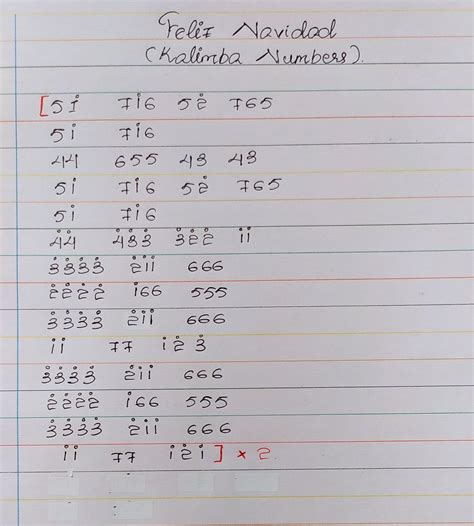 Feliz Navidad
(Kalimba Numbers).
[5i̇ 7i̇6 52̇ 765
5i̇ 7i̇6
44 655 43 43
5i̇ 7i̇6 52̇ 765
5i̇ 7i̇6
4̇4̇ 4̇3̇3̇ 3̇2̇2̇ i̇i̇
3̇3̇3̇3̇ 2̇i̇i̇ 666
2̇2̇2̇2̇ i̇66 555
3̇3̇3̇3̇ 2̇i̇i̇ 666
i̇i̇ 77 i̇2̇ 3̇
3̇3̇3̇3̇ 2̇i̇i̇ 666
2̇2̇2̇2̇ i̇66 555
3̇3̇3̇3̇ 2̇i̇i̇ 666
i̇i̇ 77 i̇2̇i̇ ] × 2.